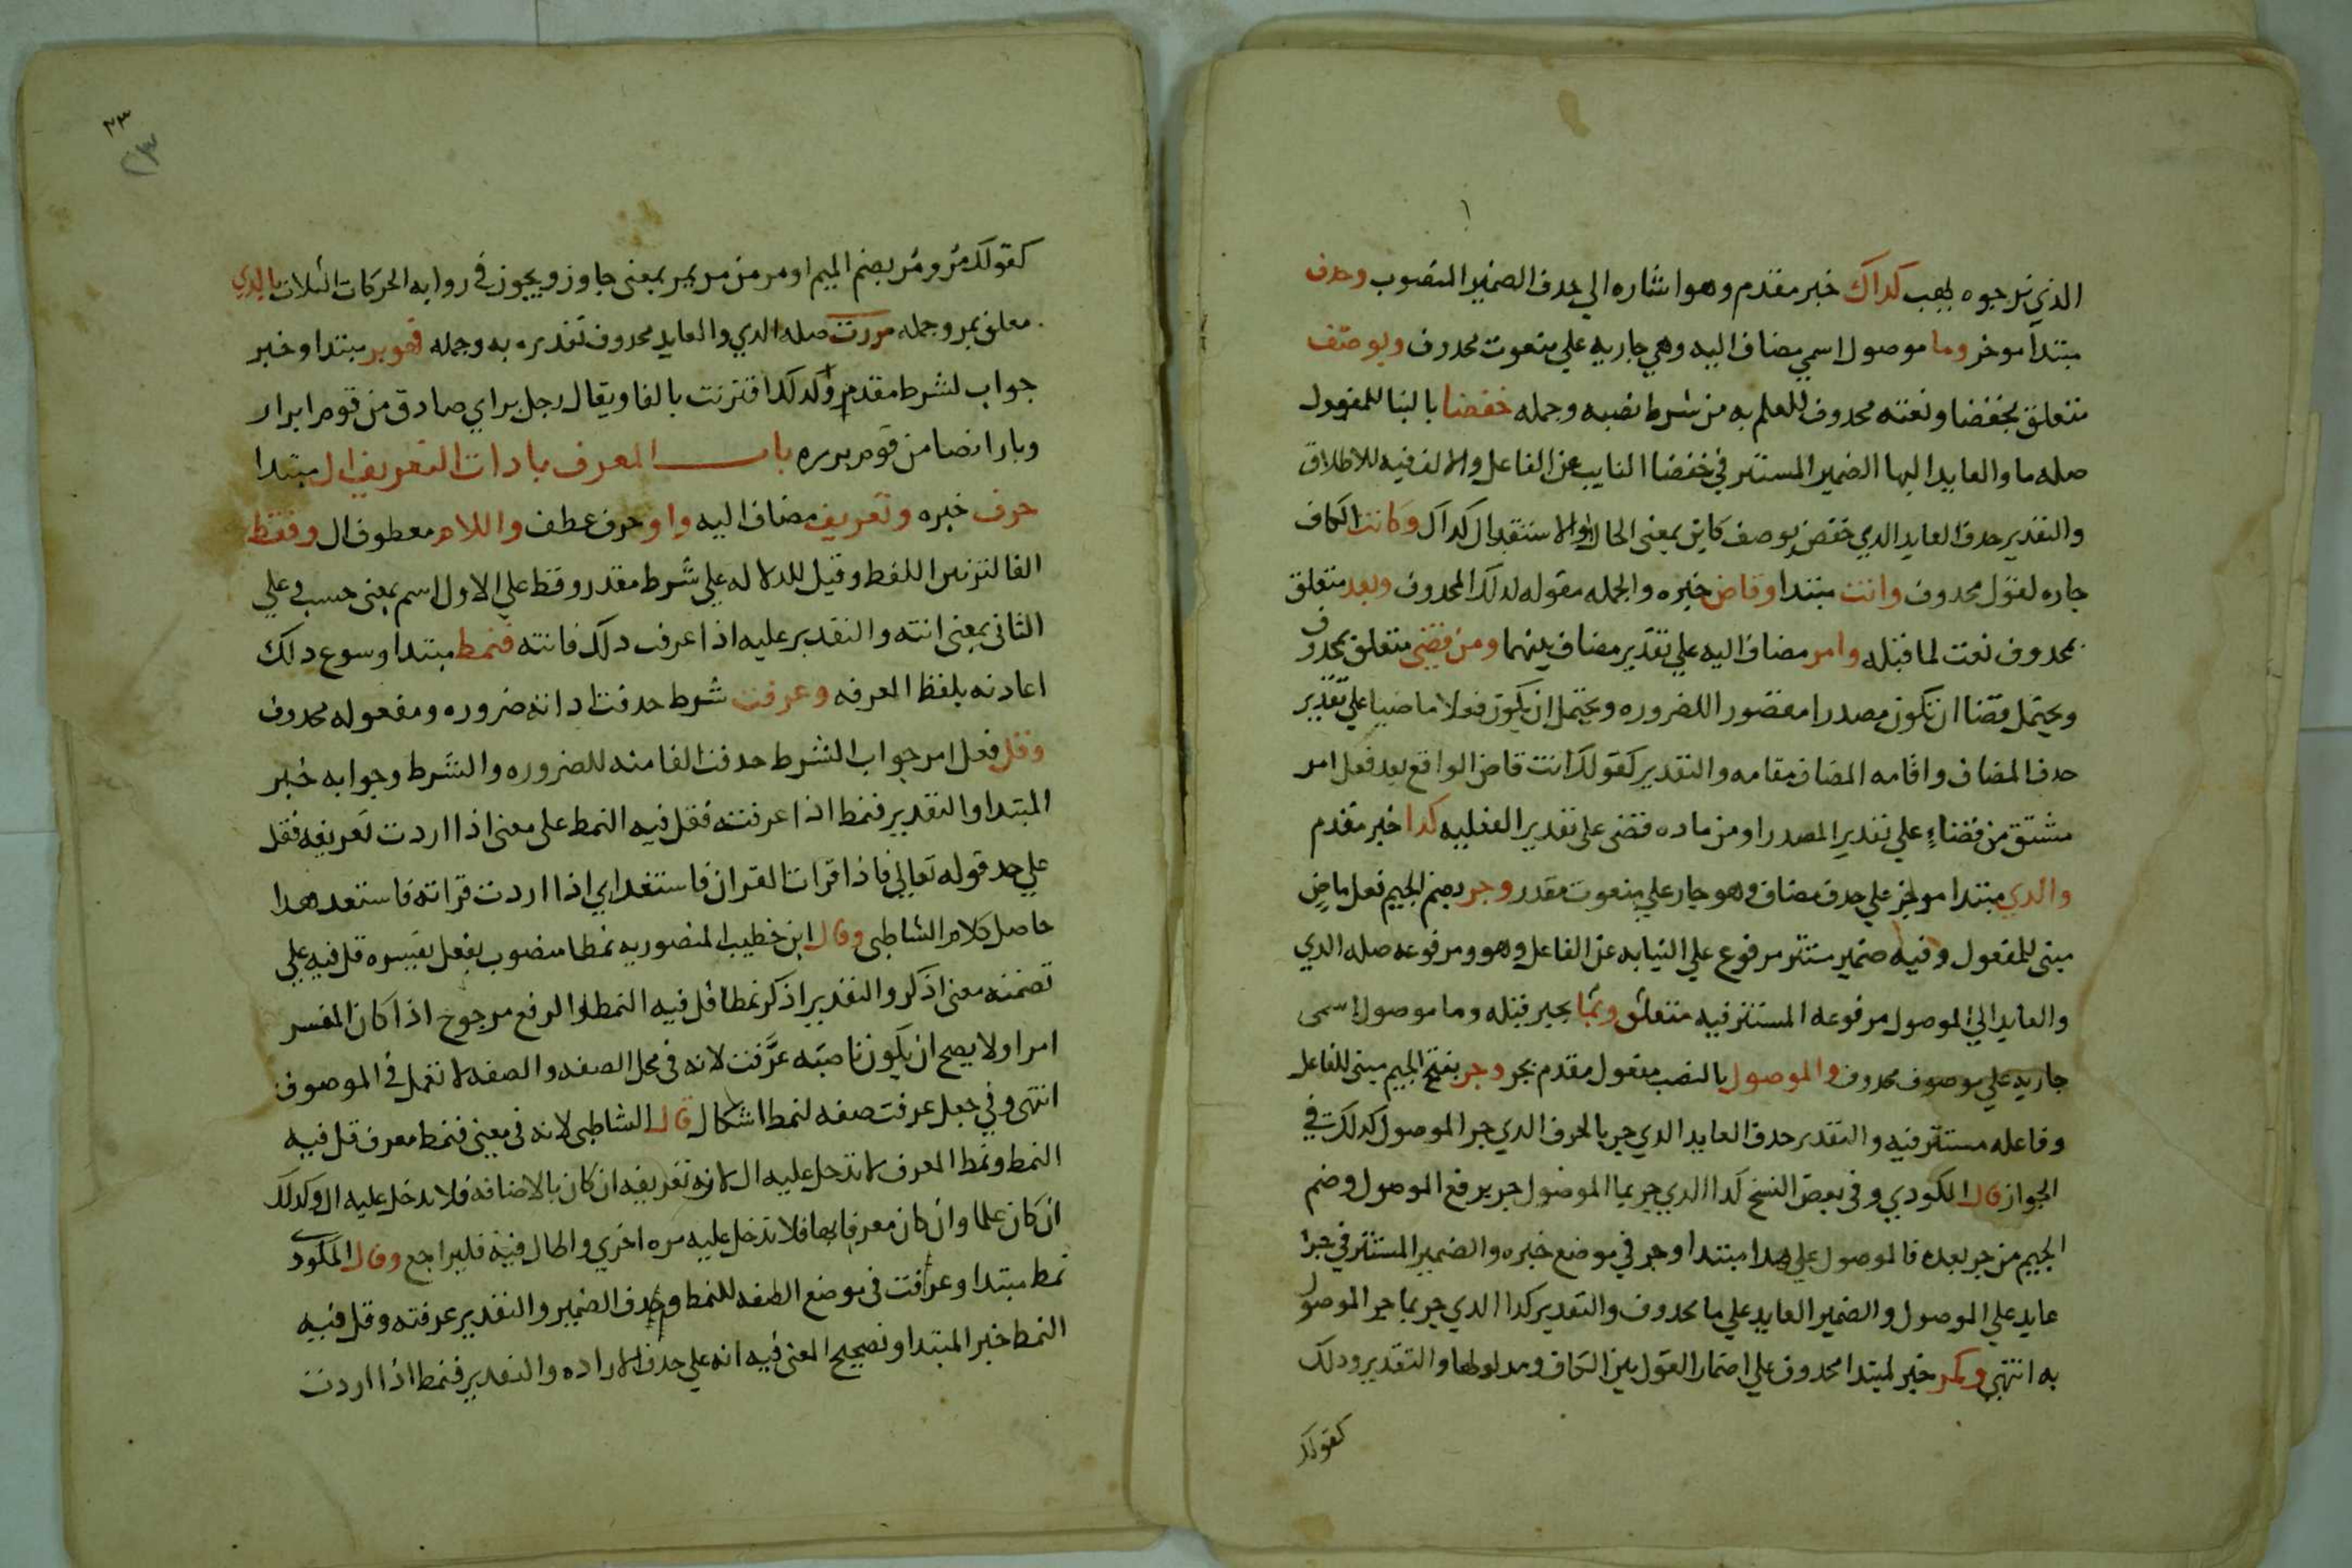 الذي نرجوه يهب كداك خبر مقدم وهو اشاره الي حدف الضمير المنصوب وحدف
مبتدا موخر وما موصول اسمي مضاف اليه وهي جاريه علي منعوت محدوف وبوصف
متعلق بخفضا ونعته محدوف للعلم به من شرط نصبه وجمله خفضا بالبنا للمفعول
صله ما والعايد اليها الضمير المستتر في خفضا النايب عن الفاعل والالف فيه للاطلاق
والتقدير حدف العايد الدي خفض بوصف كاين بمعني الحال او الاستقبال كداك وكانت الكاف
جاره لقول محدوف وانت مبتدا وقاض خبره والجمله مقوله لدلك المحدوف وبعد متعلق
بمحدوف نعت لما قبله وامر مضاف اليه علي تقدير مضاف بينهما ومن قضي متعلق بمحدوف
ويحتمل قضا ان تكون مصدرا مقصورا للضروره ويحتمل ان يكون فعلا ماضيا علي تقدير
حدف المضاف واقامه المضاف مقامه والتقدير كقولك انت قاض الواقع بعد فعل امر
مشتق من قضاء علي تقدير المصدر او من ماده قضي علي تقدير الفعليه كدا خبر مقدم
والدي مبتدا موخر علي حدف مضاف وهو جار علي منعوت مقدر وجر بضم الجيم فعل ماض
مبني للمفعول وفيه ضمير مستتر مرفوع علي النيابه عن الفاعل وهو ومرفوعه صله الدي
والعايد الي الموصول مرفوعه المستتر فيه متعلق وبما بجر قبله وما موصول اسمي
جاريه علي موصوف محدوف والموصول بالنصب مفعول مقدم بجر وجر بفتح الجيم مبني للفاعل
وفاعله مستتر فيه والتقدير حدف العايد الدي جر بالحرف الدي جر الموصول كدلك في
الجواز قال المكودي وفي بعض النسخ كدا الدي جر بما الموصول جر برفع الموصول وضم
الجيم من جر بعده فالموصول علي هدا مبتدا وجر في موضع خبره والضمير المستتر في جر
عايد علي الموصول والضمير العايد علي ما محدوف والتقدير كدا الدي جر بما جر الموصول
به انتهي وكمر خبر لمبتدا محدوف علي اضمار القول بين الكاف ومدلولها والتقدير ودلك
كقولك
٢٣
٢٣
كقولك مر ومر بضم الميم او مر من مر يمر بمعني جاوز ويجوز في روايه الحركات الثلاث بالدي
معلق بمر وجمله مررت صله الدي والعايد محدوف تقديره به وجمله فهو بر مبتدا وخبر
جواب لشرط مقدم ولدلك اقترنت بالفا ويقال رجل بر اي صادق من قوم ابرار
وبار ايضا من قوم برره باب المعرف بادات التعريف ال مبتدا
حرف خبره وتعريف مضاف اليه واو حرف عطف واللام معطوف ال وفقط
الفا لتزين اللفظ وقيل للدلاله علي شرط مقدر وقط علي الاول اسم بمعني حسب وعلي
الثاني بمعني انته والتقدير عليه اذا عرف دلك فانته فنمط مبتدا وسوغ دلك
اعادته بلفظ المعرفه وعرفت شرط حدفت اداته ضروره ومفعوله محدوف
وقل فعل امر جواب الشرط حدفت الفا منه للضروره والشرط وجوابه خبر
المبتدا والتقدير فنمط اذا عرفته فقل فيه النمط علي معني اذا اردت تعريفه فقل
علي حد قوله تعالي فاذا قرات القران فاستعد اي اذا اردت قراته فاستعد هدا
حاصل كلام الشاطبي وقال ابن خطيب المنصوريه نمطا منصوب بفعل يفسره قل فيه علي
تضمنه معني اذكر والتقدير اذكر نمطا قل فيه النمط او الرفع مرجوح اذا كان المفسر
امرا ولا يصح ان يكون ناصبه عرفت لانه في محل الصفه والصفه لا تعمل في الموصوف
انتهي وفي جعل عرفت صفه لنمط اشكال قال الشاطبي لانه في معني فنمط معرف قل فيه
النمط ونمط المعرف لا تدخل عليه ال لانه تعريفه ان كان بالاضافه فلا تدخل عليه ال وكدلك
ان كان علما وان كان معرفا بها فلا تدخل عليه مره اخري واطال فيه فليراجع وقال المكودي
نمط مبتدا وعرفت في موضع الصفه للنمط وحدف الضمير والتقدير عرفته وقل فيه
النمط خبر المبتدا وتصحيح المعني فيه انه علي حدف الاراده والتقدير فنمط اذا اردت